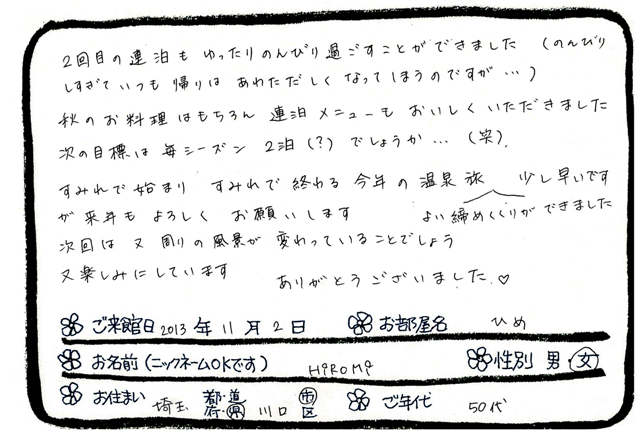 2回目の連泊も ゆったりのんびり過ごすことができました (のんびり
しすぎて いつも 帰りは あわただしく なってしまうのですが…)
秋の お料理 はもちろん 連泊 メニューも おいしく いただきました
次の目標は 毎シーズン 2泊(?) でしょうか…(笑)
すみれで 始まり すみれで 終わる 今年の 温泉 旅 少し早いです
が 来年も よろしく お願いします よい締めくくりが できました
次回は 又 周りの風景が 変わっていることでしょう
又楽しみにしています ありがとうございました♡
ご来館日 2013 年 11 月 2 日 お部屋名 ひめ
お名前(ニックネームOKです) HiROMi 性別 男・女
お住まい 埼玉 都・道 府・県 川口 市 区 ご年代 50代